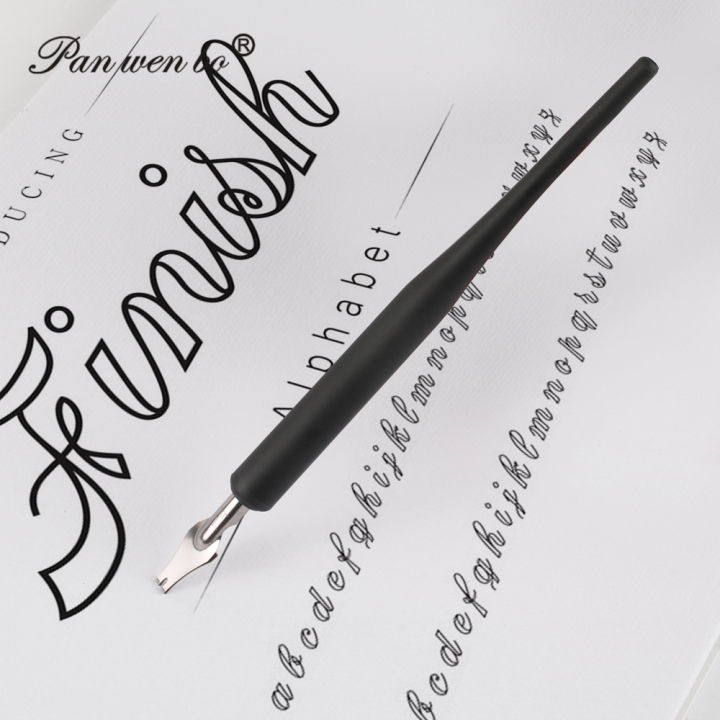 Panwenbo®
DUCING
Finish
Alphabet
a b c d e f g h i j k l m n o p q w x y z
b c d e f g h i j k l m n o p q r s t u v w x y z